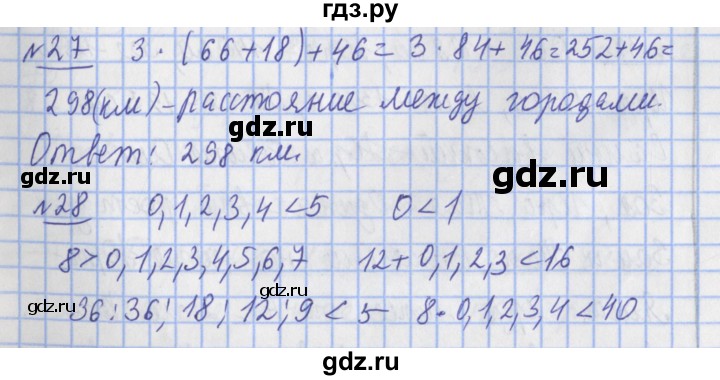 гдз.ру
№27 3 · (66+18)+46= 3 · 84+46=252+46=
298(км)-расстояние между городами.
gdz.ru
gdz.ru
Ответ: 298 км.
№28 0,1,2,3,4<5 0<1
8>0,1,2,3,4,5,6,7 12+0,1,2,3<16
gdz.ru
gdz.ru
36:36; 18; 12; 9 < 5 8·0,1,2,3,4<40
gdz.ru
gdz.ru